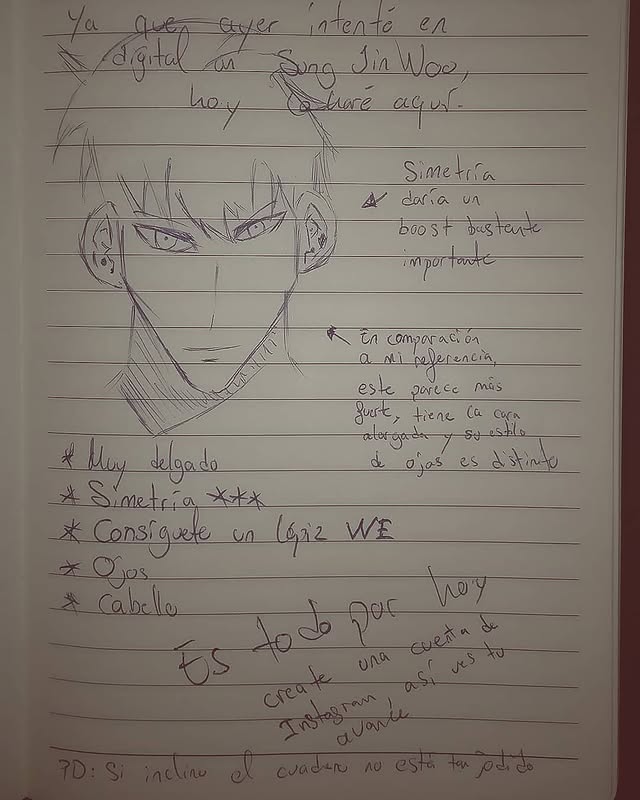 Ya que ayer intenté en
digital un Sung Jin Woo,
hoy lo haré aquí.
Simetría
daría un
boost bastante
importante
En comparación
a mi referencia,
este parece más
fuerte, tiene la cara
alargada y su estilo
de ojos es distinto
* Muy delgado
* Simetría ***
* Consíguete un lápiz WE
* Ojos
* Cabello
Es todo por hoy
create una cuenta de
Instagram, así ves tu
avance
PD: Si inclino el cuaderno no está tan jodido